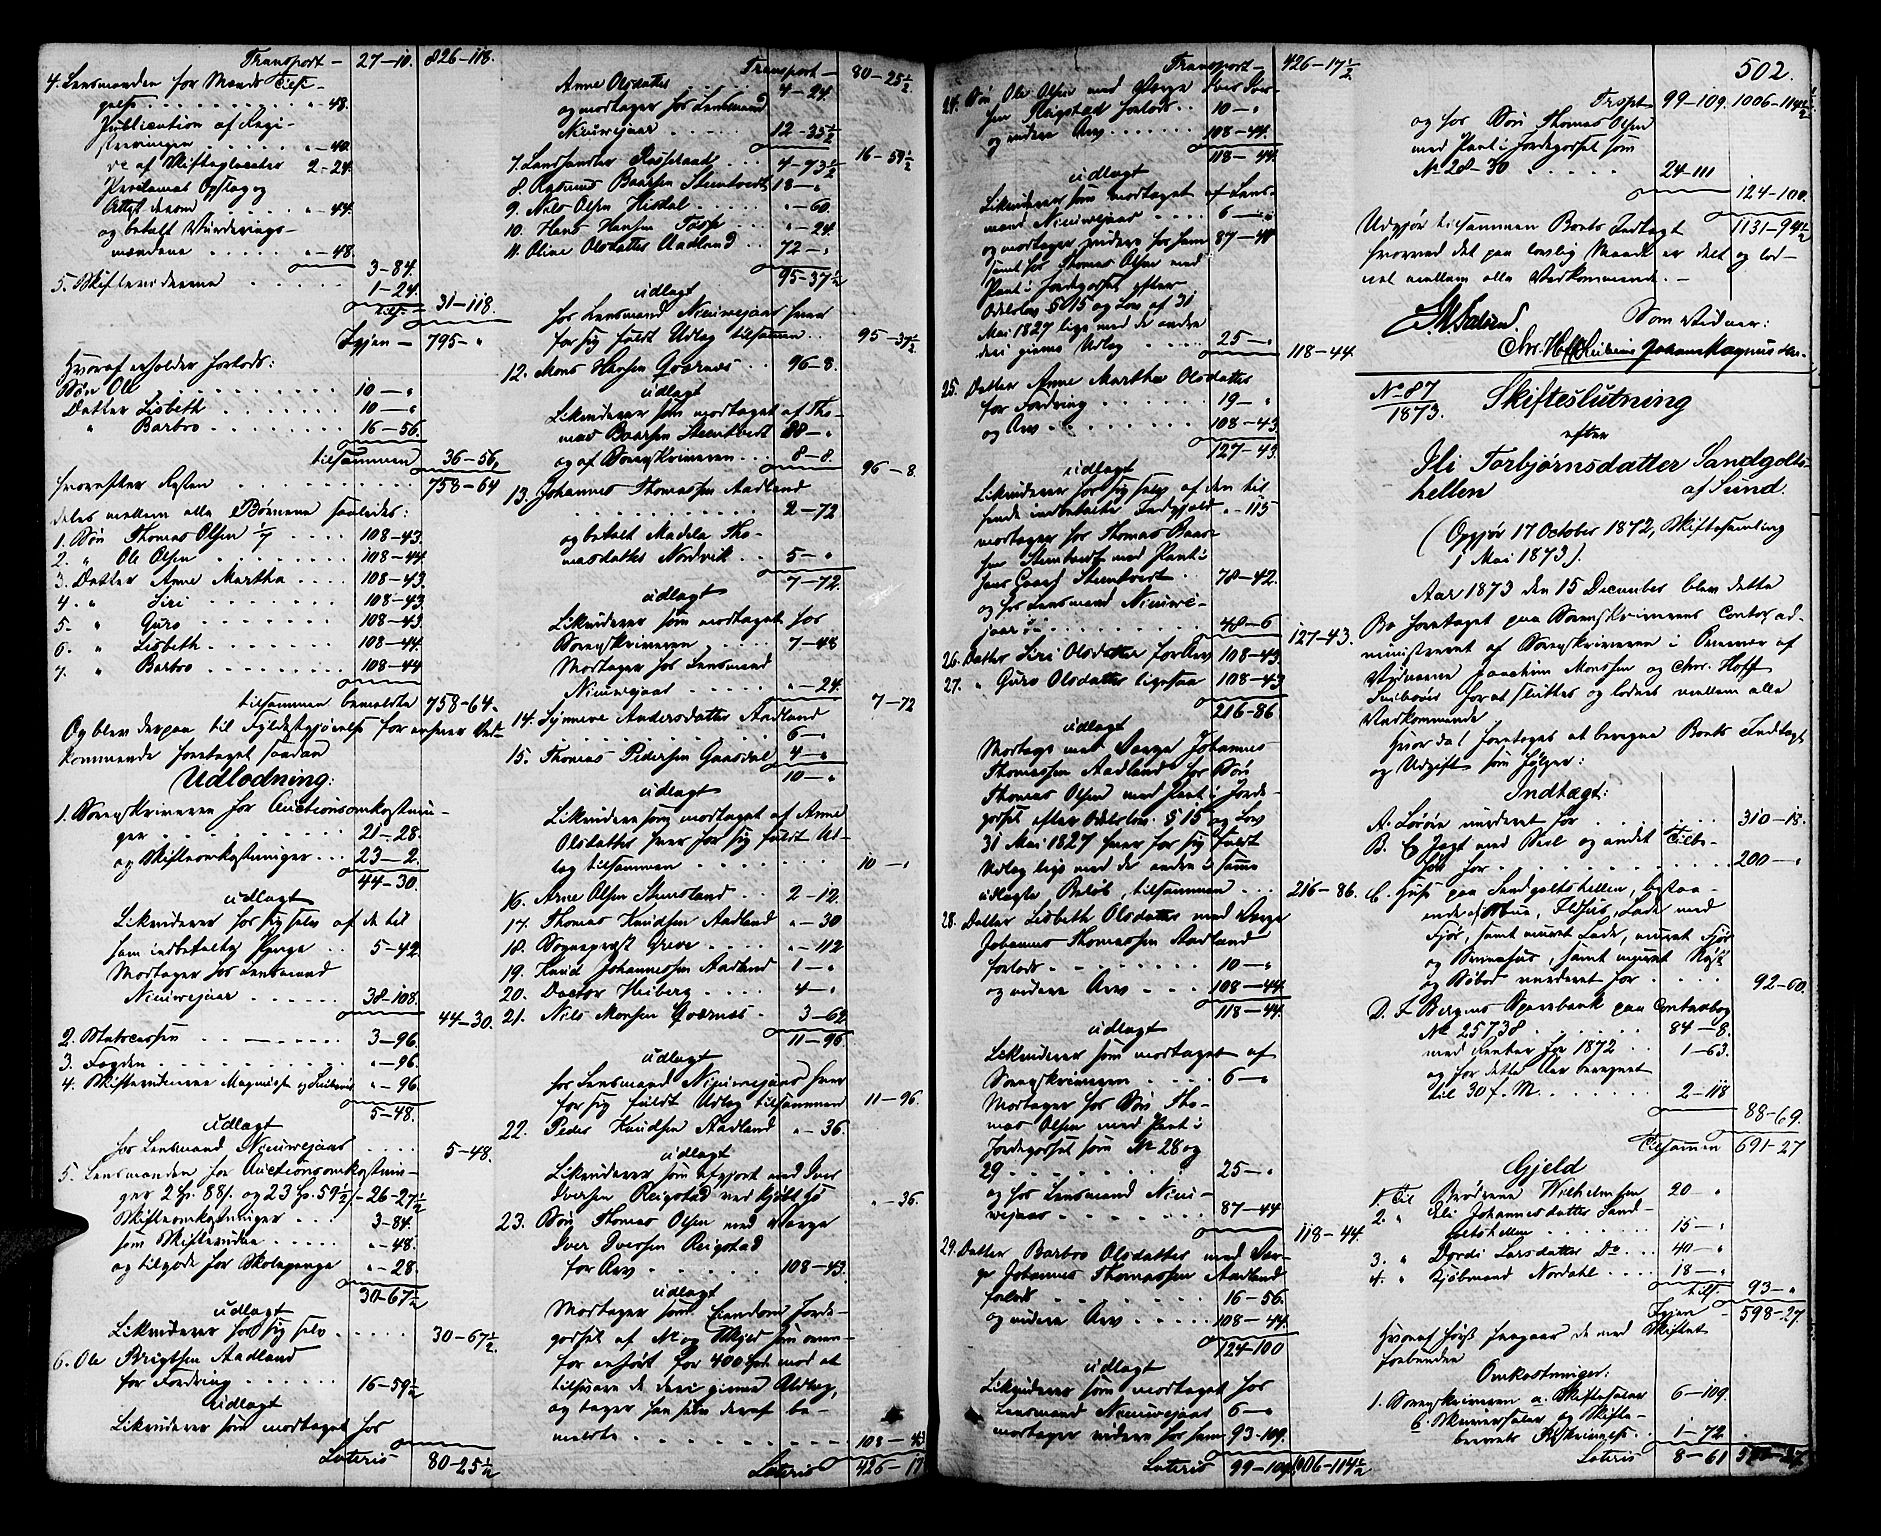 Transport - 27-10. 826-118.
4. Lensmanden for Mands Tilsi-
gelse . . . . . . . . "-48.
Publication af Regi-
streringen . . . . . "-40.
do af Skiftegloeater 2-24.
Proclamas Opslag og
Attest derom . . . . "-44.
og betalt Vurderings-
mændene . . . . . "-48.
3-84.
5. Skiftevidnerne . . . . . 1-24.
tils. 31-118.
Igjen - 795-"
Hvoraf erholder forlods:
Søn Ole . . . . . . . . 10-"
Datter Lisbeth . . . . . . 10-"
" Barbro . . . . . . . 16-56.
tilsammen 36-56.
hvorefter Resten . . . . . . . 758-64
deles mellem alle Børnene saaledes:
1. Søn Thomas Olsen 1/7 . . . . 108-43.
2. " Ole Olsen . . . . . . 108-44
3. Datter Anne Martha . . . . 108-43.
4. " Siri . . . . . . . 108-43
5. " Guro . . . . . . 108-43
6. " Lisbeth . . . . . . 108-44.
7. " Barbro . . . . . . 108-44
tilsammen bemeldte 758-64.
Og blev derpaa til Fyldestgjørelse for enhver Ved-
kommende foretaget saadan
Udlodning:
1. Sorenskriveren for Auctionsomkostnin-
ger . . . . . . . . . 21-28.
og Skifteomkostninger . . . 23-2.
44-30.
udlagt
Likviderer hos sig selv af de til
ham indbetalte Penge . . 5-42.
Modtager hos Lensmand
Nieuwejaar . . . . . 38-108.
44-30.
2. Statscassen . . . . . . 3-96.
3. Fogden . . . . . . . "-96.
4. Skiftevidnerne Magnussen og Heiberg "-96
5-48.
udlagt
hos Lensmand Nieuwejaar . . . . 5-48.
5. Lensmanden for Auctionsomkostnin-
ger 2 Sp. 88 s. og 23 Sp. 59½ s. - 26-27½
Skifteomkostninger . . . 3-84.
som Skiftevidne . . . . . "-48.
og tilgode for Skolepenge "-28.
30-67½
udlagt
Likviderer hos sig selv . . . . . 30-67½.
6. Ole Brigtsen Aadland
for Fordring . . . . . . 16-59½
udlagt
Likviderer som modtaget hos
Lateris 80-25½
Transport - 80-25½
Anne Olsdatter . . . . . 4-24.
og modtager hos Lensmand
Nieuwejaar . . . . . 12-35½
16-59½
7. Landhandler Rosseland . . . 4-73½
8. Rasmus Baarsen Steentvedt 18-"
9. Nils Olsen Hisdal . . . . "-60.
10. Hans Hansen Tosse . . . "-24.
11. Oline Olsdatter Aadland . . 72-"
95-37½
udlagt
hos Lensmand Nieuwejaar hver
for sig fuldt Udlæg tilsammen . . 95-37½
12. Mons Hansen Goernes . . . 96-8.
udlagt
Likviderer som modtaget af Tho-
mas Baarsen Steentvedt 88-"
og af Sorenskriveren . . . 8-8.
96-8.
13. Johannes Thomassen Aadland
. . . . . . . . . . . 2-72
og betalt Madela Tho-
masdatter Nordvik . . 5-"
7-72.
udlagt
Likviderer som modtaget hos
Sorenskriveren . . . . . 7-48
Modtager hos Lensmand
Nieuwejaar . . . . . . "-24.
7-72
14. Synneve Andersdatter Aadland
. . . . . . . . . . . 6-"
15. Thomas Pedersen Gaasdal 4-"
10-"
udlagt
Likviderer som modtaget af Anne
Olsdatter hver for sig fuldt Ud-
læg tilsammen . . . . . . . 10-"
16. Arne Olsen Stensland . . . 2-12.
17. Thomas Knudsen Aadland "-30
18. Sogneprest Greve . . . . "-112
19. Knud Johannessen Aadland 1-"
20. Doctor Heiberg . . . . 4-"
21. Nils Monsen Goernes . . . 3-62.
11-96
udlagt
hos Lensmand Nieuwejaar hver
for sig fuldt Udlæg tilsammen 11-96.
22. Peder Knudsen Aadland . "-36.
udlagt
Likviderer som afgjort med Iver
Iversen Reigstad ved kjøbt Hø "-36.
23. Søn Thomas Olsen med Værge
Iver Iversen Reigstad
for Arv . . . . . . . 108-43.
udlagt
Modtager som Eiendom Jorde-
godset af No og Skyld som oven-
for anført for 400 Spd. mod at
tilsvare de deri givne Udlæg,
og tager han selv deraf be-
meldte . . . . . . . . . . . . 108-43
Lateris 426-17
Transport - 426-17½
24. Søn Ole Olsen med Værge Iver Iver-
sen Reigstad forlods . . 10-"
og videre Arv . . . . . . 108-44.
118-44.
udlagt
Likviderer som modtaget af Lens-
mand Nieuwejaar . . . . 6-"
og modtager videre hos ham 87-44
samt hos Thomas Olsen med
Pant i Jordegodset efter
Odelslov § 15 og Lov af 31
Mai 1827 lige med de andre
deri givne Udlæg . . . . 25-"
118-44.
25. Datter Anne Martha Olsdatter
for Fordring . . . . . . 19-"
og Arv . . . . . . . . 108-43.
127-43
udlagt
Likviderer hos sig selv af den til
hende indbetalte Indgjæld "-115
modtager hos Thomas Baar-
sen Steentvedt med Pant i
hans Gaard Steentvedt . . 78-42.
og hos Lensmand Nieuwe-
jaar . . . . . . . . . . 48-6
127-43.
26. Datter Siri Olsdatter for Arv 108-43.
27. " Guro Olsdatter ligesaa 108-43
216-86.
udlagt
Modtage med Værge Johannes
Thomassen Aadland hos Søn
Thomas Olsen med Pant i Jorde-
godset efter Odelslov. § 15 og Lov
31 Mai 1827 hver for sig fuldt
Udlæg lige med de andre i samme
udlagte Beløb, tilsammen . . . 216-86.
28. Datter Lisbeth Olsdatter med Værge
Johannes Thomassen Aadland
forlods . . . . . . . . 10-"
og videre Arv . . . . . . 108-44.
118-44.
udlagt
Likviderer som modtaget af
Sorenskriveren . . . . 6-"
Modtager hos Søn Tho-
mas Olsen med Pant i
Jordegodset som No 28 og
29 . . . . . . . . . . 25-"
og hos Lensmand Nieu-
wejaar . . . . . . . . 87-44
118-44.
29. Datter Barbro Olsdatter med Vær-
ge Johannes Thomassen Aadland
forlods . . . . . . . . 16-56.
og videre Arv . . . . . . 108-44.
124-100
udlagt
Likviderer som modtaget hos
Lensmand Nieuwejaar 6-"
modtager videre hos ham 93-109.
Lateris 99-109. 1006-114½
502.
Trspt 99-109. 1006-114½
og hos Søn Thomas Olsen
med Pant i Jordegodset som
No 28-30 . . . . . 24-111
124-100.
Udgjør tilsammen Boets Indtægt 1131-94½
hvorved det paa lovlig Maade er delt og lod-
net mellem alle Vedkommende. -
Som Vidner:
Chr. Hoff Heiberg Johan Magnussen.
No 87
1873.
Skifteslutning
efter
Eli Torbjørnsdatter Sandgolts-
hellen af Sund.
(Opgjør 17 October 1872, Skiftesamling
1 Mai 1873).
Aar 1873 den 15 December blev dette
Bo foretaget paa Sorenskriverens Contor ad-
ministreret af Sorenskriveren i Overvær af
Vidnerne Joachim Monssen og Chr. Hoff
Heiberg for at sluttes og loddes mellem alle
Vedkommende
Hvorda foretoges at beregne Boets Indtægt
og Udgift som følger:
Indtægt:
A. Løsøre vurderet for . . . . . . . 310-18.
B. E Jagt med Seil og andet Tilbe-
hør for . . . . . . . . . . . 200-"
C. Huse paa Sandgoltshellen, bestaa-
ende af Stue, Ildhus, Lade med
Fjøs, samt muret Lade, muret Fjøs
og Svinehus, samt muret Nøst
og Søbod vurderet for . . . . 92-60.
D. I Bergens Sparebank paa Contrabog
No 25738 . . . . . 84-8.
med Renter for 1872 . . 1-63.
og for dette Aar beregnet
til 30 f. M. . . . . . . 2-118
88-69.
Tilsammen 691-27
Gjeld
1. Til Brødrene Wilhelmsen 20-"
2. " Eli Johannesdatter Sand-
goltshellen . . . . . . 15-"
3. " Dordi Larsdatter Do . . . 40-"
4. " Kjøbmand Nordahl . . . . 18-"
tils. 93-"
Igjen 598-27.
Hvoraf først fragaar de med Skiftet
forbundne
Omkostninger:
1. Sorenskriveren a. Skiftesalær 6-109.
b. Skriversalær og Skifte-
brevets Beskrivelse . . 1-72.
Lateris 8-61